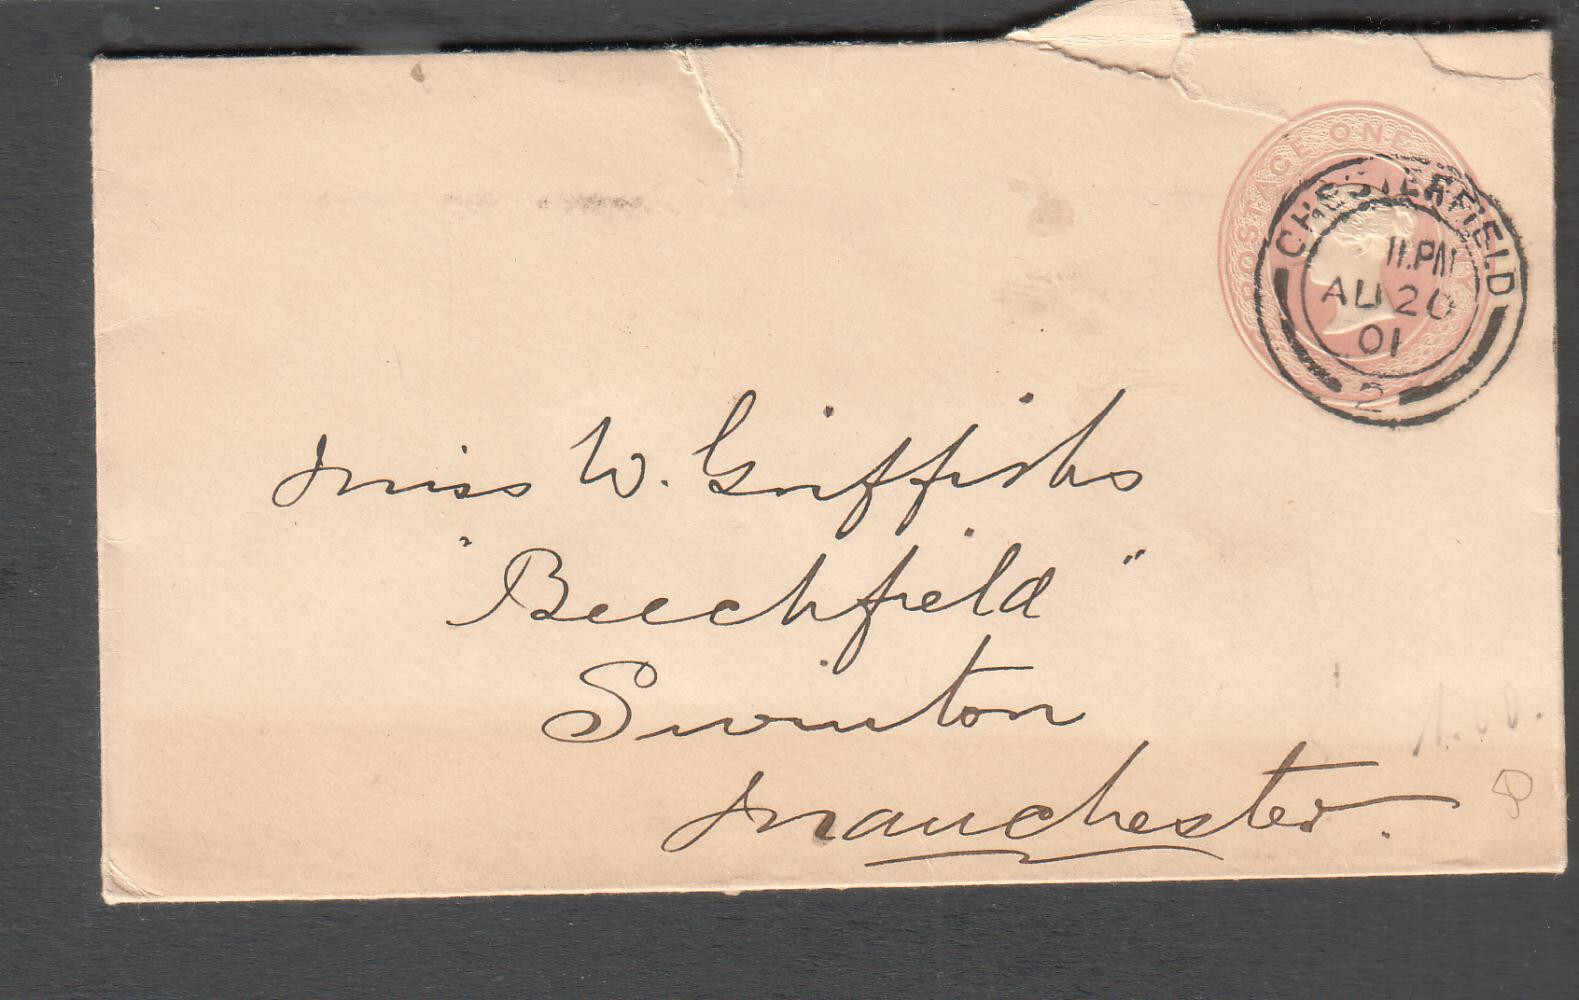 POSTAGE ONE
CHESTERFIELD
11.PM
AU 20
01
2
Miss W. Griffiths
"Beechfield"
Swinton
Manchester.